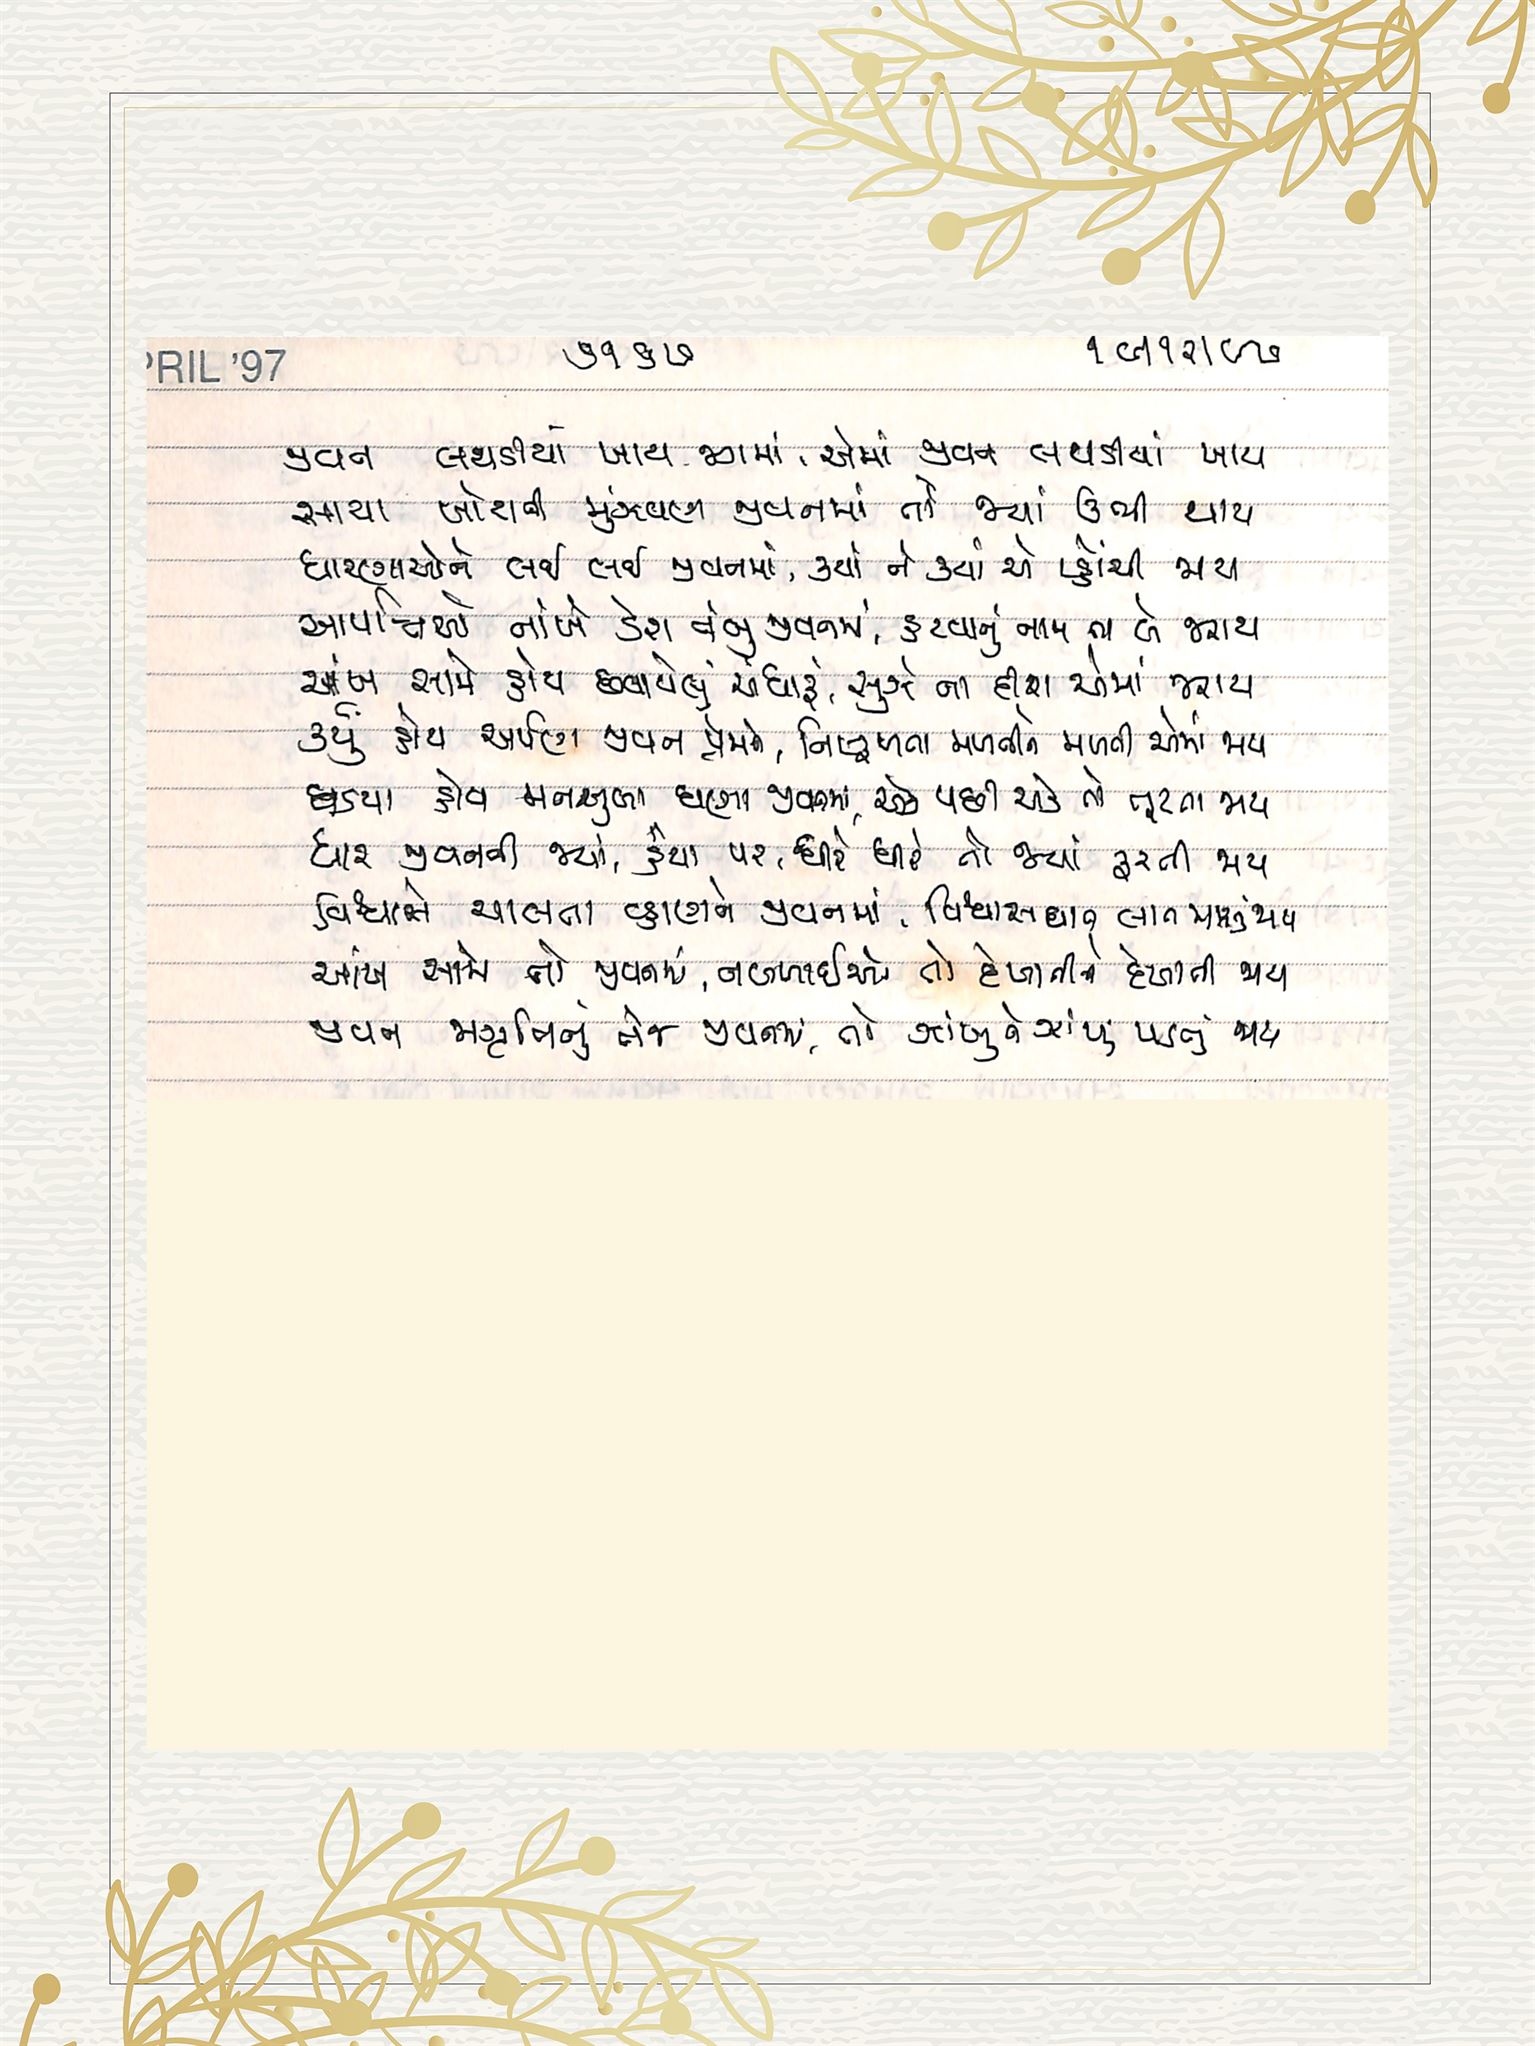 PRIL '97 ૭૧૬૭ ૧૯।૧૨।૯૭
જીવન લથડીયાં ખાય જગમાં, એમાં જીવન લથડીયાં ખાય
સાચા ખોટાની મુંઝવણ જીવનમાં તો જ્યાં ઉભી થાય
ધારણાઓને લઈ લઈ જીવનમાં, ક્યાં ને ક્યાં એ પ્હોંચી જાય
આપત્તિઓ નાંખે ડેરા તંબુ જીવનમાં, હટવાનું નામ ના લે જરાય
આંખ સામે હોય છવાયેલું અંધારૂં, સુઝે ના દીશા એમાં જરાય
કર્યું હોય અર્પણ જીવન પ્રેમને, નિષ્ફળતા મળતીને મળતી એમાં જાય
ઘડયા હોય મનસુબા ઘણા જીવનમાં, એક પછી એક તો તૂટતા જાય
ધાર જીવનની જ્યાં, હૈયા પર, ધીરે ધીરે તો જ્યાં ફરતી જાય
વિશ્વાસે ચાલતા વ્હાણને જીવનમાં, વિશ્વાસઘાત લાત મારતું જાય
આંખ સામે તો જીવનમાં, નબળાઈઓ તો દેખાતીને દેખાતી જાય
જીવન જાગૃતિનું તેજ જીવનમાં, તો ઝાંખુને ઝાંખુ પડતું જાય